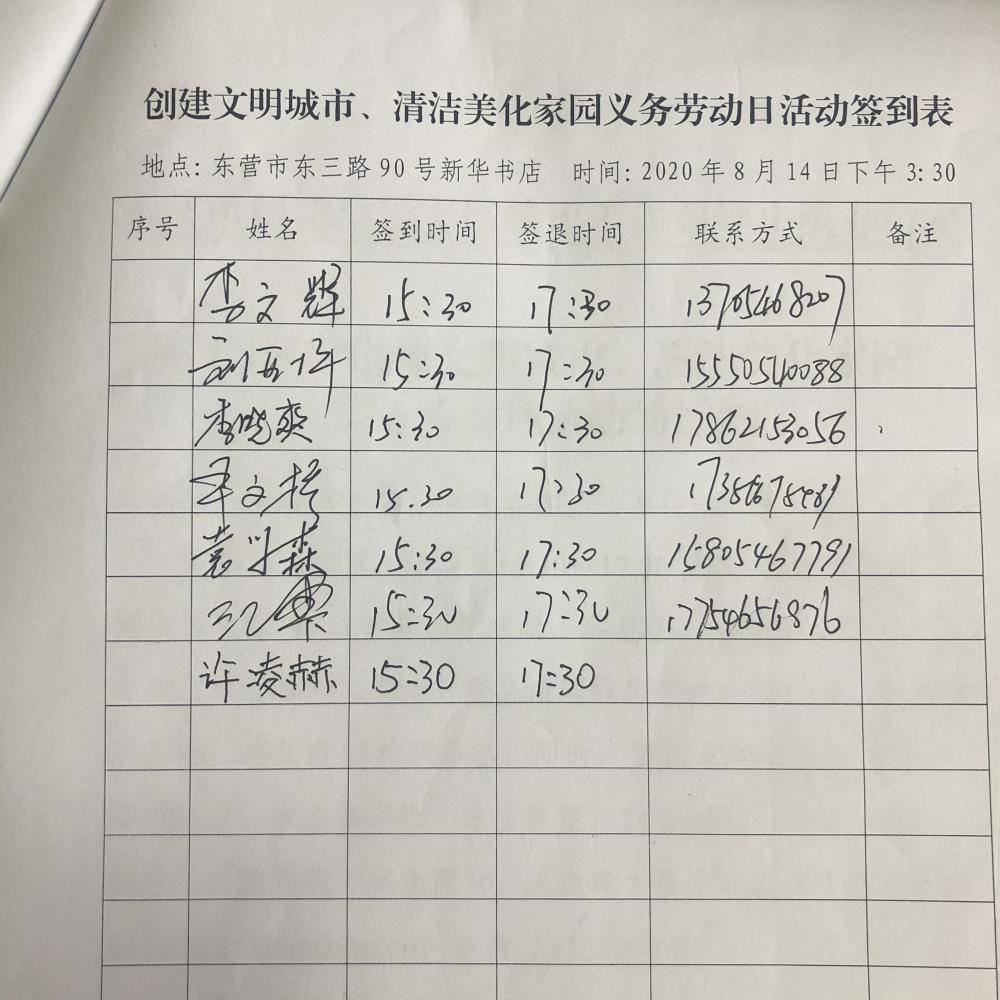 创建文明城市、清洁美化家园义务劳动日活动签到表
地点: 东营市东三路90号新华书店 时间: 2020年8月14日下午3:30
序号 姓名 签到时间 签退时间 联系方式 备注
李文辉 15:30 17:30 13705468207
15:30 17:30 15550540088
李晓爽 15:30 17:30 17862153056
15.30 17:30
15:30 17:30 15805467791
15:30 17:30 17754656876
许凌赫 15:30 17:30